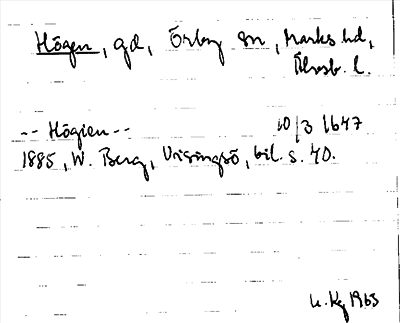 Högen, gd, Örby sn, Marks hd,
Älvsb. l.
-- Högien -- 10/3 1647
1885, W. Berg, Visingsö, bil. s. 40.
U. Kg 1963